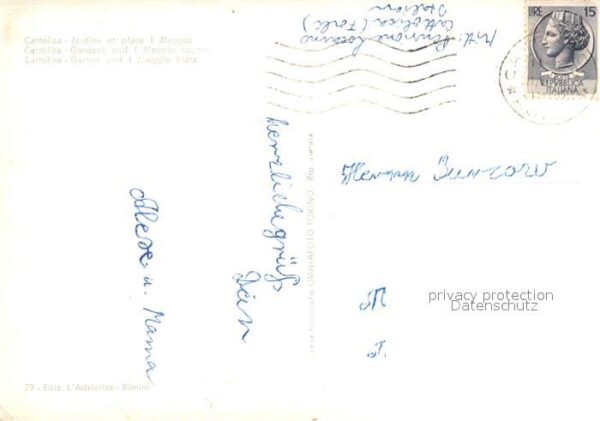 Cattolica - Jardins et place 1 Maggio
Cattolica - Gardens and 1 Maggio square
Cattolica - Garten und 1 Maggio Platz
Pensione Locarno
Cattolica (Forlì)
Italien
LIRE 15
POSTE
REPVBBLICA
ITALIANA
herzlichegrüß
Dein
Alex u. Mama
Hermann
privacy protection
Datenschutz
79 - Ediz. L'Adriatica - Rimini